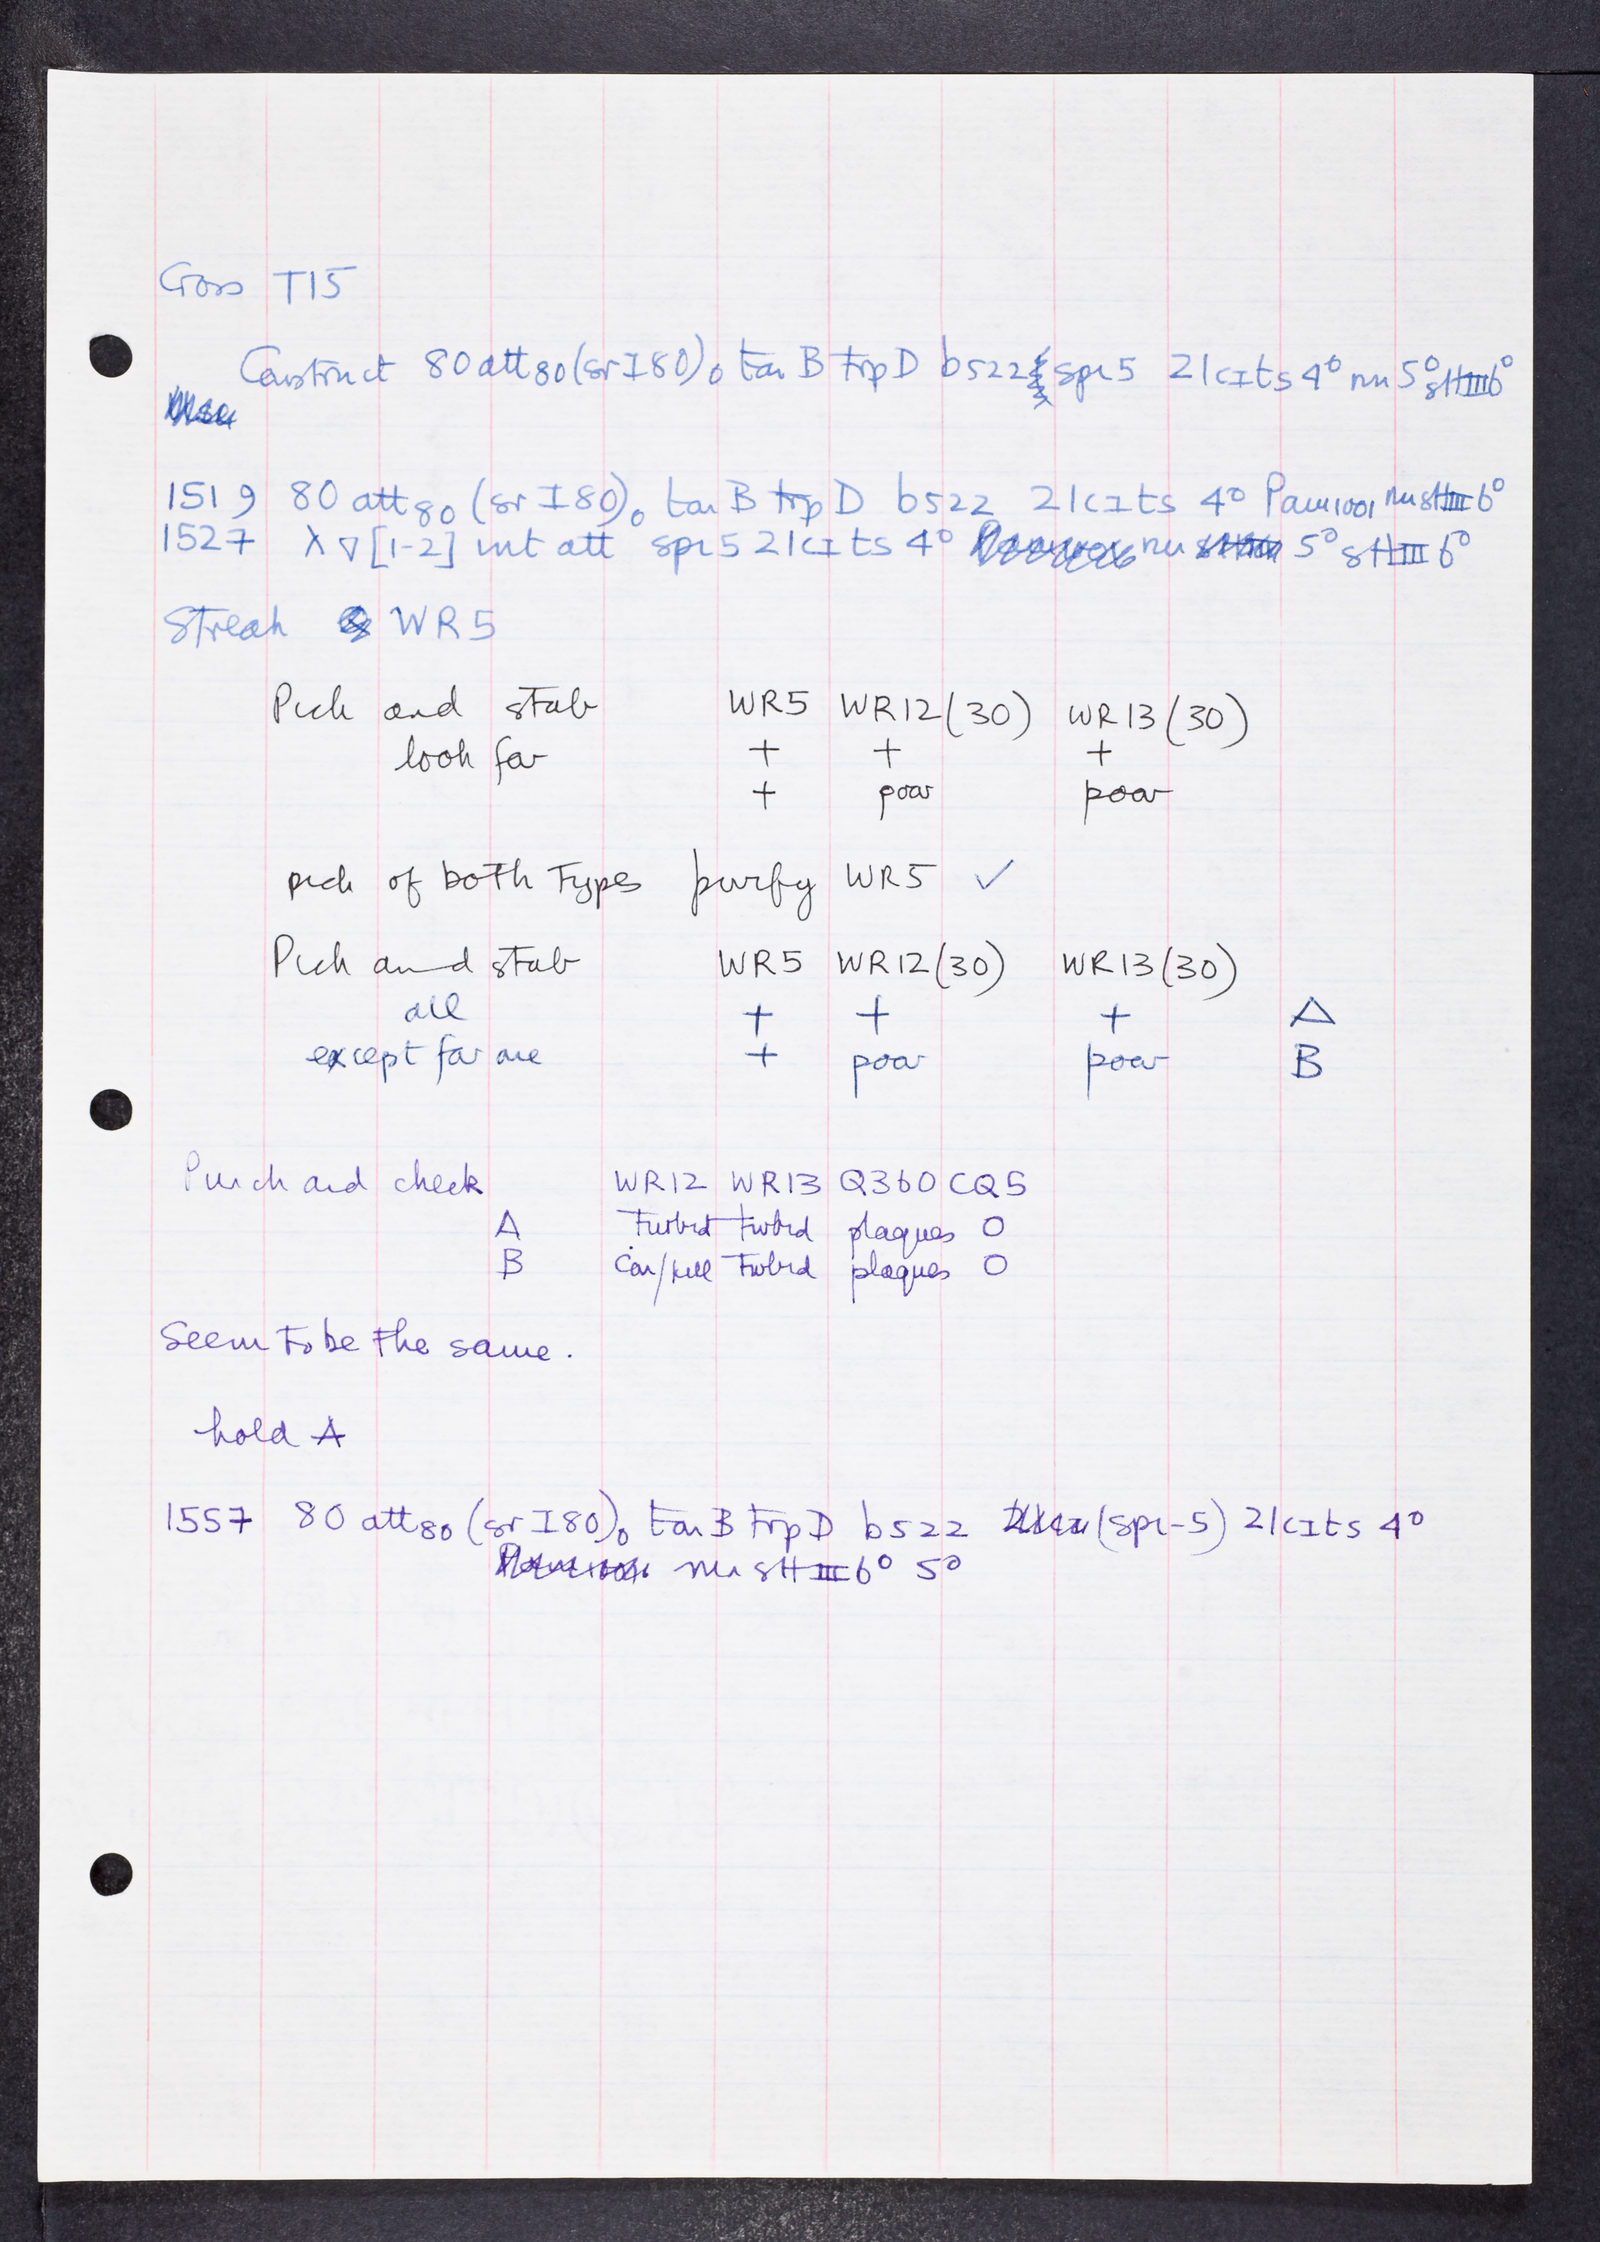 Cross T15
Construct 80 att80 (sr I 80)o ton B trp D b522 spi 5 21 cIts 4° nin 5° sHIII6°
1519 80 att80 (sr I 80)o ton B trp D b522 21 cIts 4° Pam1001 nin sHIII6°
1527 λ ∇ [1-2] int att spi 5 21 cIts 4° nin 5° sHIII 6°
Streak WR5
Pick and stab WR5 WR12(30) WR13(30)
look for + + +
+ poor poor
pick of both types purify WR5 ✓
Pick and stab WR5 WR12(30) WR13(30)
all + + + A
except for one + poor poor B
Punch and check WR12 WR13 Q360 CQ5
A Turbid Turbid plaques O
B Con/kill Turbid plaques O
Seem to be the same.
hold A
1557 80 att80 (sr I 80)o ton B trp D b522 (spi-5) 21 cIts 4°
nin sHIII6° 5°